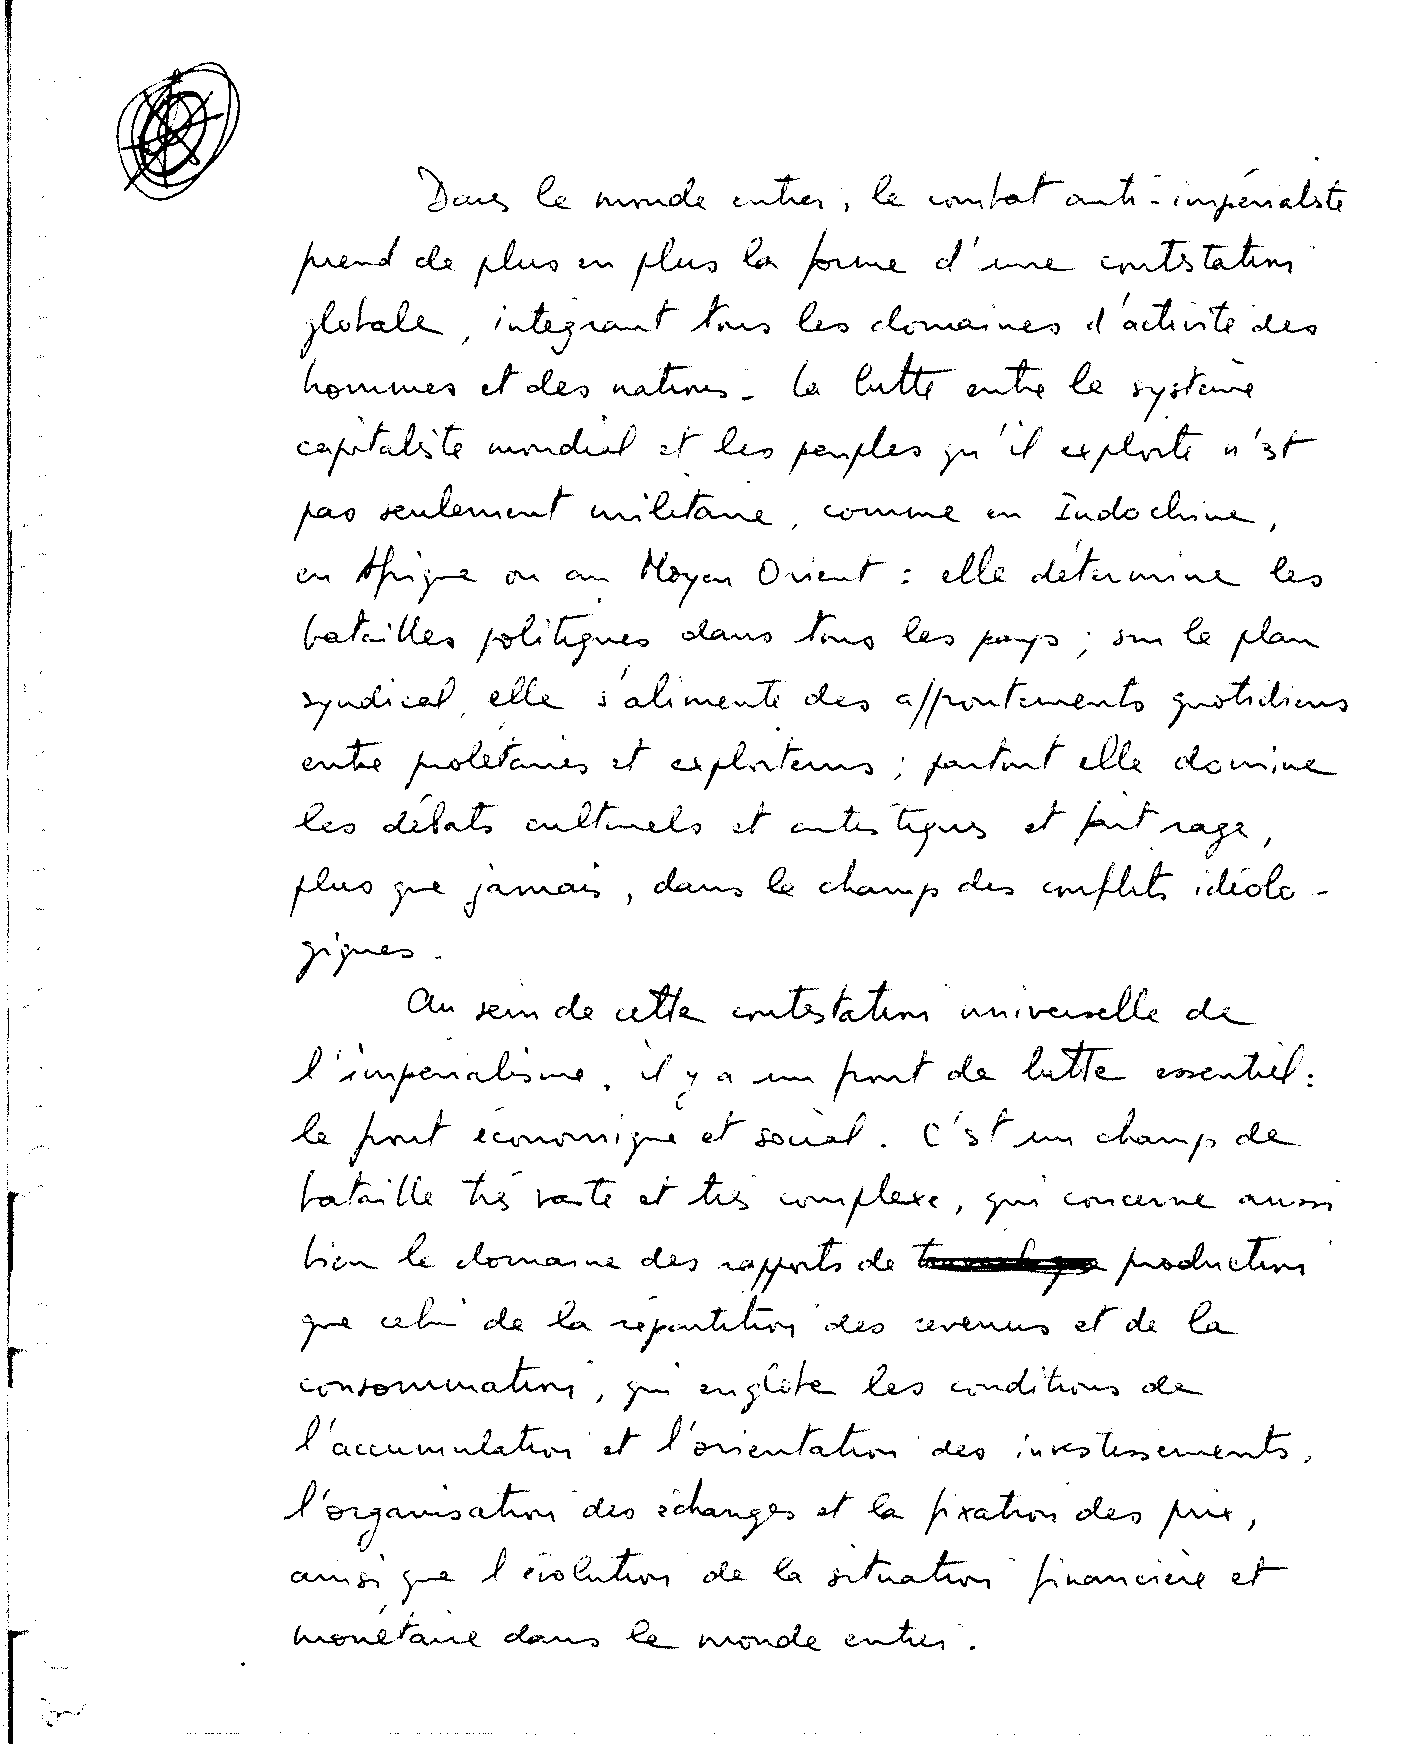 Dans le monde entier, le combat anti-impérialiste
prend de plus en plus la forme d'une contestation
globale, intégrant tous les domaines d'activité des
hommes et des nations. La lutte entre le système
capitaliste mondial et les peuples qu'il exploite n'est
pas seulement militaire, comme en Indochine,
en Afrique ou au Moyen Orient : elle détermine les
batailles politiques dans tous les pays ; sur le plan
syndical, elle s'alimente des affrontements quotidiens
entre prolétaires et exploiteurs ; partout elle domine
les débats culturels et artistiques et fait rage,
plus que jamais, dans le champ des conflits idéolo-
giques.
Au sein de cette contestation universelle de
l'impérialisme, il y a un front de lutte essentiel :
le front économique et social. C'est un champ de
bataille très vaste et très complexe, qui concerne aussi
bien le domaine des rapports de production
que celui de la répartition des revenus et de la
consommation, qui englobe les conditions de
l'accumulation et l'orientation des investissements,
l'organisation des échanges et la fixation des prix,
ainsi que l'évolution de la situation financière et
monétaire dans le monde entier.